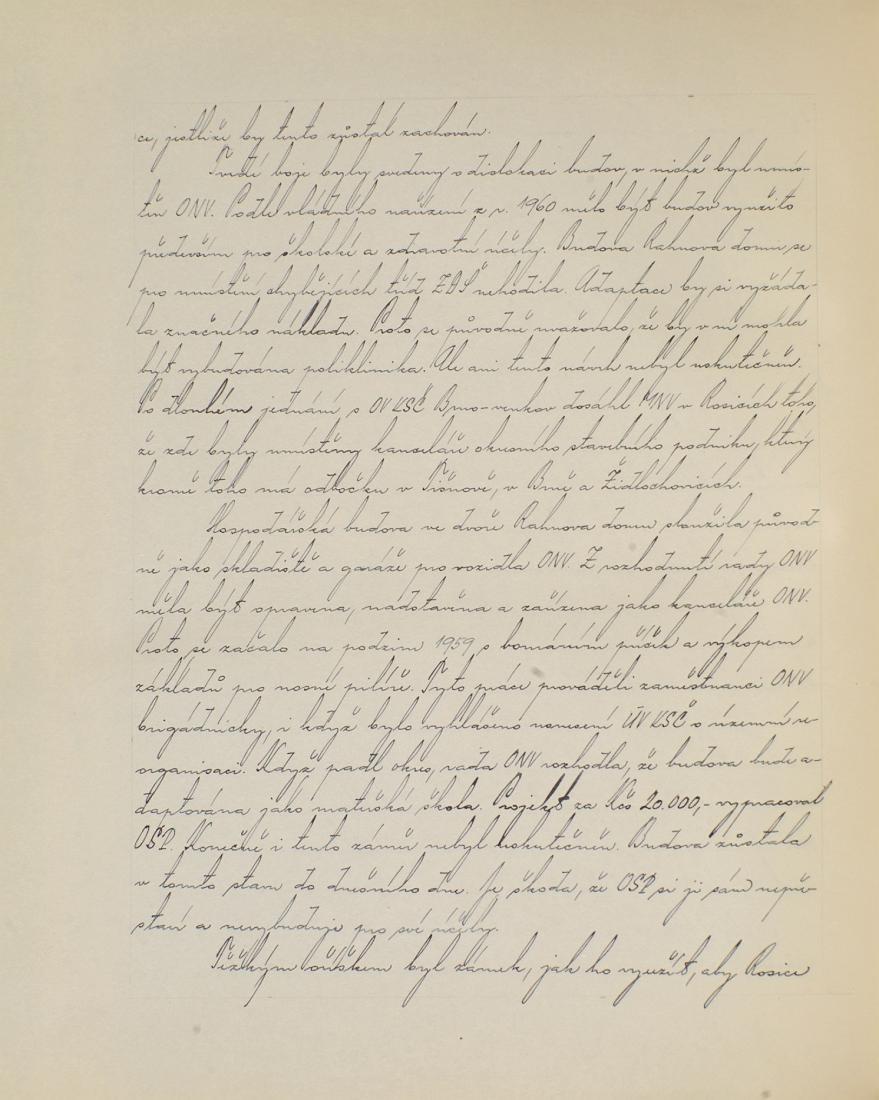 ce, jestliže by tento zůstal zachován.
Tvrdé boje byly svedeny o dislokaci budov, v nichž byl umís-
těn ONV. Podle vládního nařízení z r. 1960 mělo být budov využito
především pro školské a zdravotní účely. Budova Rahnova domu se
pro umístění chybějících tříd ZDŠ nehodila. Adaptace by si vyžáda-
la značného nákladu. Proto se původně uvažovalo, že by v ní mohla
být vybudována poliklinika. Ale ani tento návrh nebyl uskutečněn.
Po dlouhém jednání s OV KSČ Brno-venkov dosáhl MNV v Rosicích toho,
že zde byly umístěny kanceláře okresního stavebního podniku, který
kromě toho má odbočku v Tišnově, v Brně a Židlochovicích.
Hospodářská budova ve dvoře Rahnova domu sloužila původ-
ně jako skladiště a garáže pro vozidla ONV. Z rozhodnutí rady ONV
měla být opravena, nadstavěna a zařízena jako kanceláře ONV.
Proto se začalo na podzim 1959 s bouráním příček a výkopem
základů pro nosné pilíře. Tyto práce prováděli zaměstnanci ONV
brigádnicky, i když bylo vyhlášeno usnesení ÚV KSČ o územní re-
organisaci. Když padl okres, rada ONV rozhodla, že budova bude a-
daptována jako mateřská škola. Projekt za Kčs 20.000,- vypracoval
OSP. Konečně i tento záměr nebyl uskutečněn. Budova zůstala
v tomto stavu do dnešního dne. Je škoda, že OSP si ji sám nepře-
staví a nevybuduje pro své účely.
Těžkým oříškem byl zámek, jak ho využít, aby Rosice